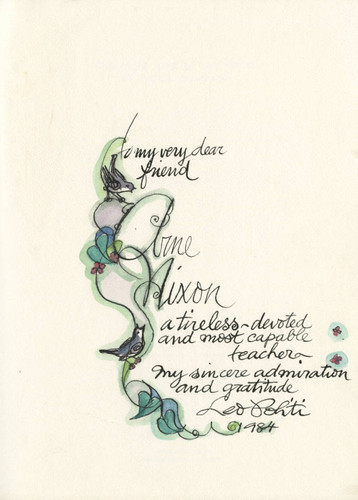 To my very dear
friend
Arne
Nixon
a tireless-devoted
and most capable
teacher-
my sincere admiration
and gratitude
Leo Politi
1984